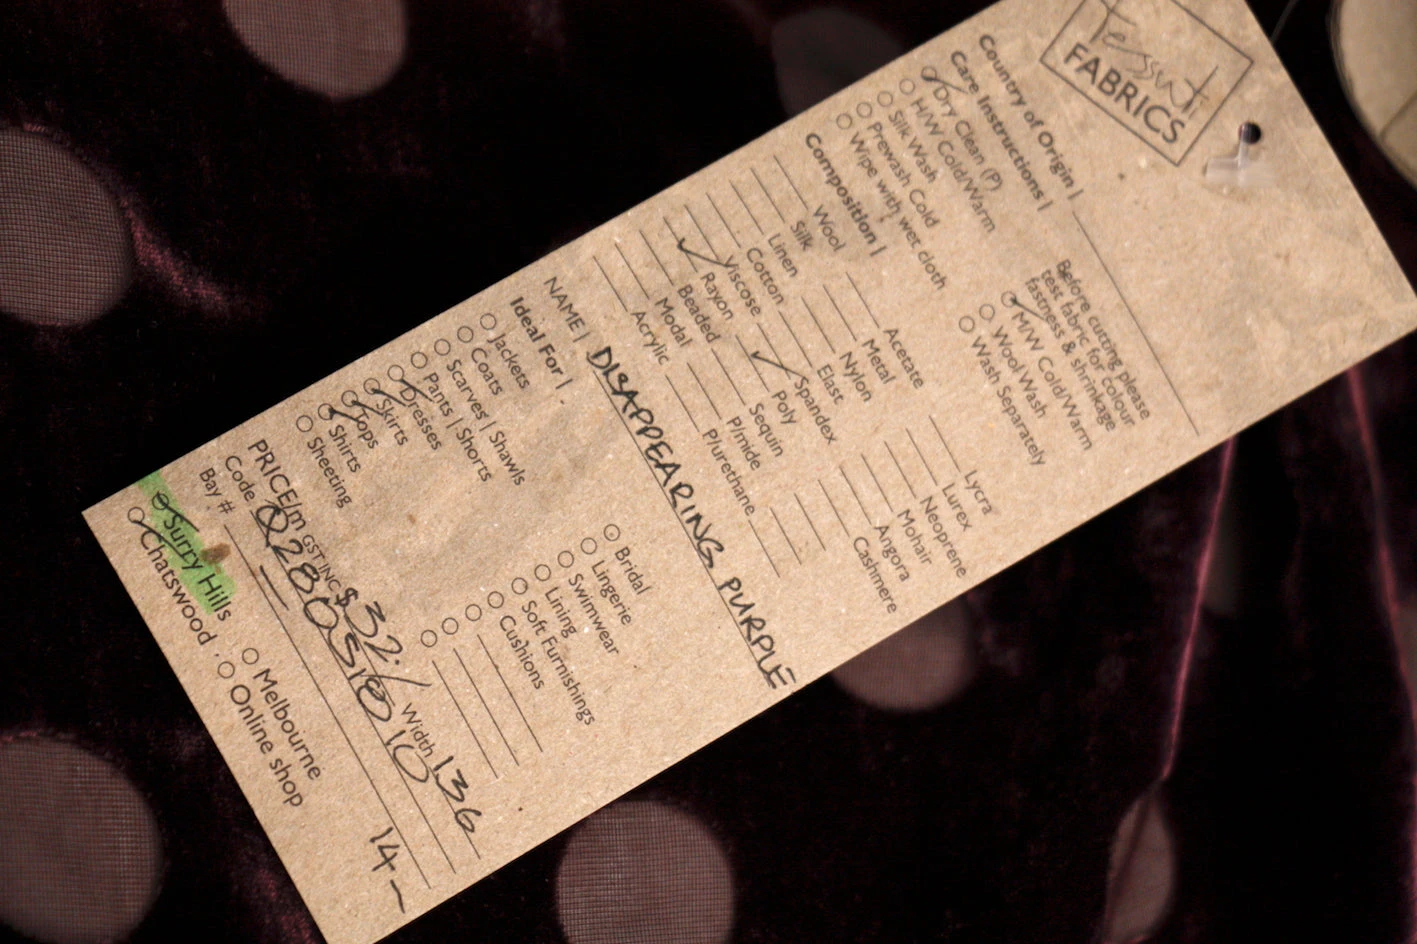 Tessuti
FABRICS
Country of Origin |
Care Instructions |
Dry Clean (P)
H/W Cold/Warm
Silk Wash
Prewash Cold
Wipe with wet cloth
Before cutting please
test fabric for colour
fastness & shrinkage
M/W Cold/Warm
Wool Wash
Wash Separately
Composition |
Wool
Silk
Linen
Cotton
Viscose
Rayon
Beaded
Modal
Acrylic
Acetate
Metal
Nylon
Elast
Spandex
Poly
Sequin
P/mide
P/urethane
Lycra
Lurex
Neoprene
Mohair
Angora
Cashmere
NAME | DISAPPEARING PURPLE
Ideal For |
Jackets
Coats
Scarves | Shawls
Pants | Shorts
Dresses
Skirts
Tops
Shirts
Sheeting
Bridal
Lingerie
Swimwear
Lining
Soft Furnishings
Cushions
PRICE/m GST INC $ 32./ Width 136
Code
Bay # 14-
Surry Hills
Chatswood
Melbourne
Online shop